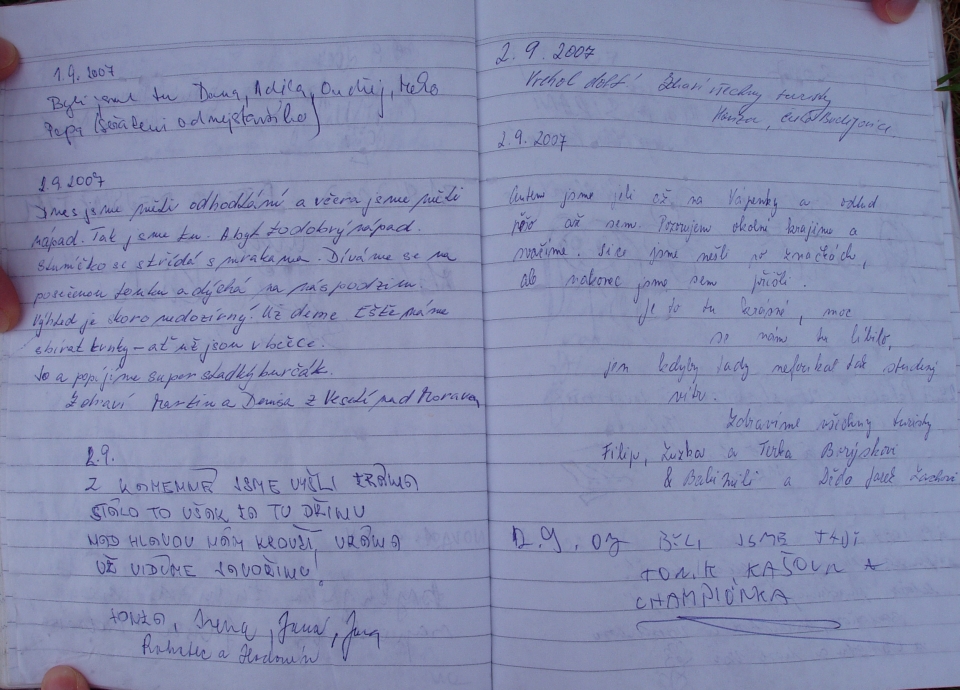 1.9.2007
Byli jsme tu Dana, Adéla, Ondřej, Melo
Pepa
2.9.2007
Dnes jsme měli odhodlání a včera jsme měli
nápad. Tak jsme tu. A byl to dobrý nápad.
Sluníčko se střídá s mrakama. Díváme se na
posečenou louku a dýchá na nás podzim.
Výhled je skoro nedozírný. Už deme Eště máme
sbírat trnky – ať už jsou v bečce.
Jo a popíjíme super sladký burčák.
Zdraví Martin a Denisa z Veselí nad Moravou
2.9.
Z KAMENNÉ JSME VYŠLI ZRÁNA
STÁLO TO VŠAK ZA TU DŘINU
NAD HLAVOU NÁM KROUŽÍ VRÁNA
UŽ VIDÍME JAVOŘINU!
JONZA, Irena, Jana, Jara
Rohatec a Hodonín
2.9.2007
Vrchol dobš Zdraví všechny turisty
Honza, České Budějovice
2.9.2007
Autem jsme jeli až na Vápenky a odtud
pěšo až sem. Pozorujem okolní krajinu a
svačíme. Sice jsme nešli po značkách,
ale nakonec jsme sem přišli.
Je to tu krásné, moc
se nám tu líbilo,
jen kdyby tady nefoukal tak studený
vítr.
Zdravíme všechny turisty
Filip, Zuzka a Terka
& Babi a Děda
2.9.07 BYLI JSME TADY
TONIK, KAŠOUN A
CHAMPIÓNKA